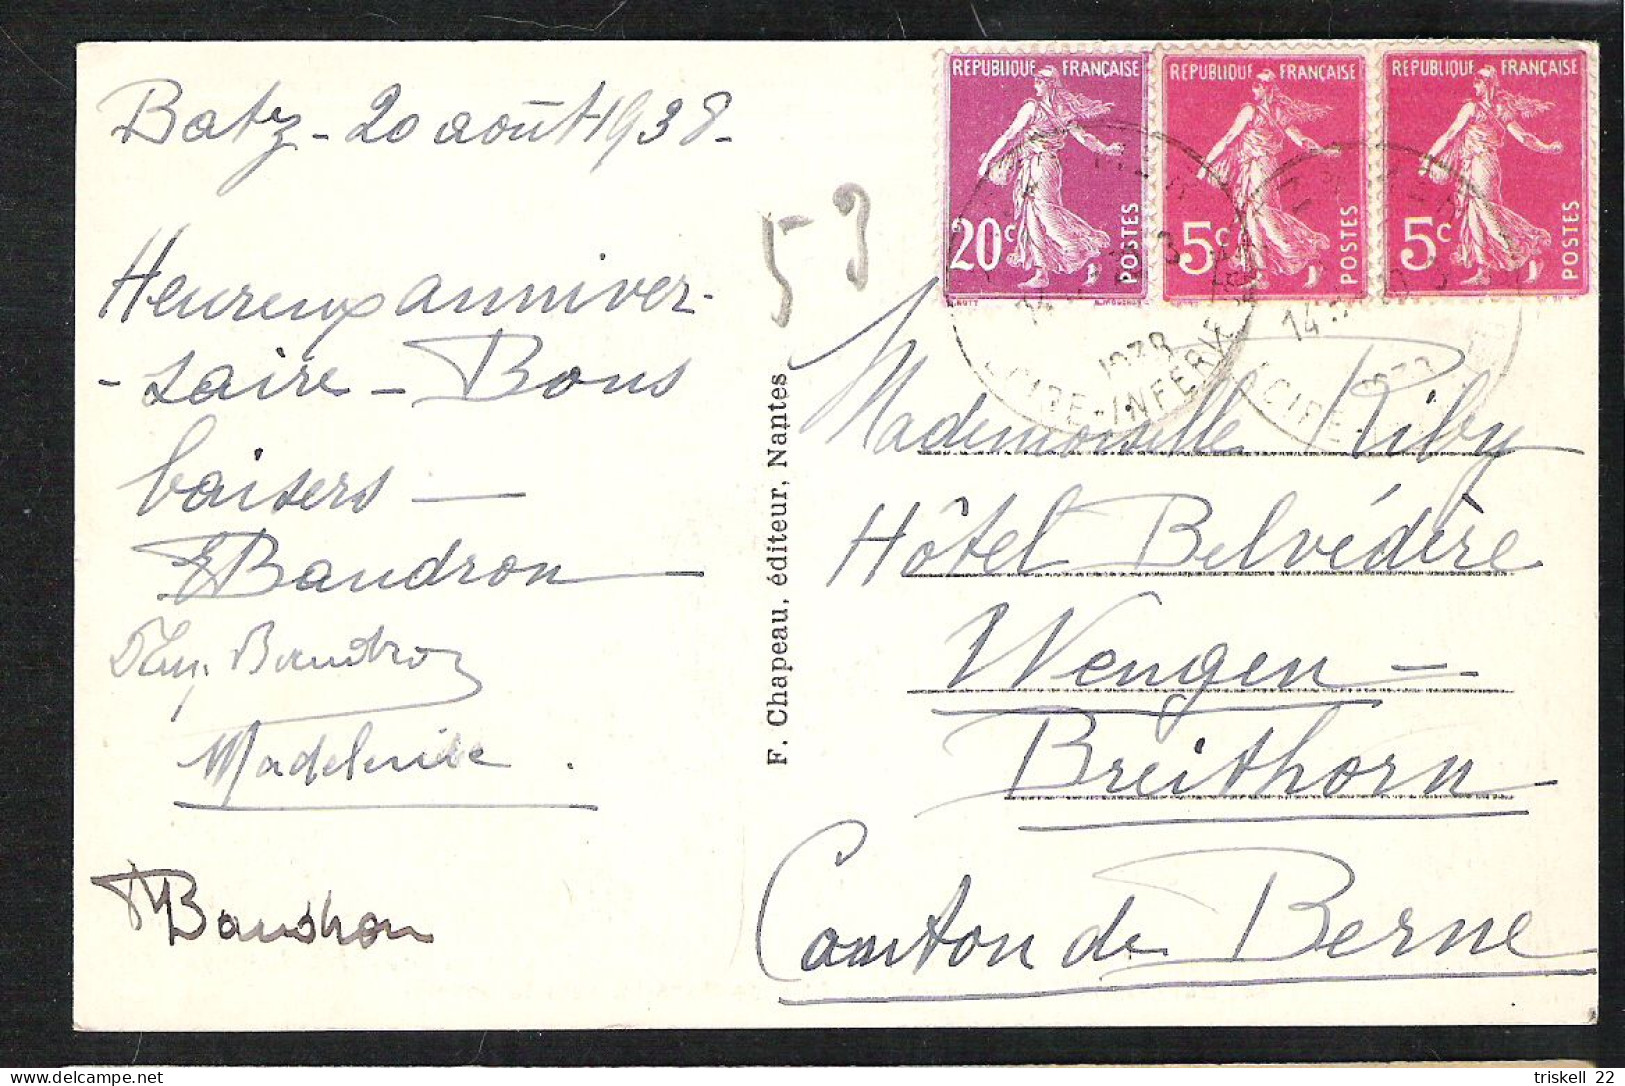 Batz - 20 août 1938 -
Heureux anniver-
- saire - Bons
baisers -
Baudron
Baudron
Madeleine.
Baudron
53
F. Chapeau, éditeur, Nantes
REPUBLIQUE FRANÇAISE
20c
POSTES
REPUBLIQUE FRANÇAISE
5c
POSTES
REPUBLIQUE FRANÇAISE
5c
POSTES
1938
LOIRE-INFERRE
14
1938
LOIRE-
Mademoiselle Riby
Hôtel Belvédère
Wengen -
Breithorn
Canton de Berne
triskell 22